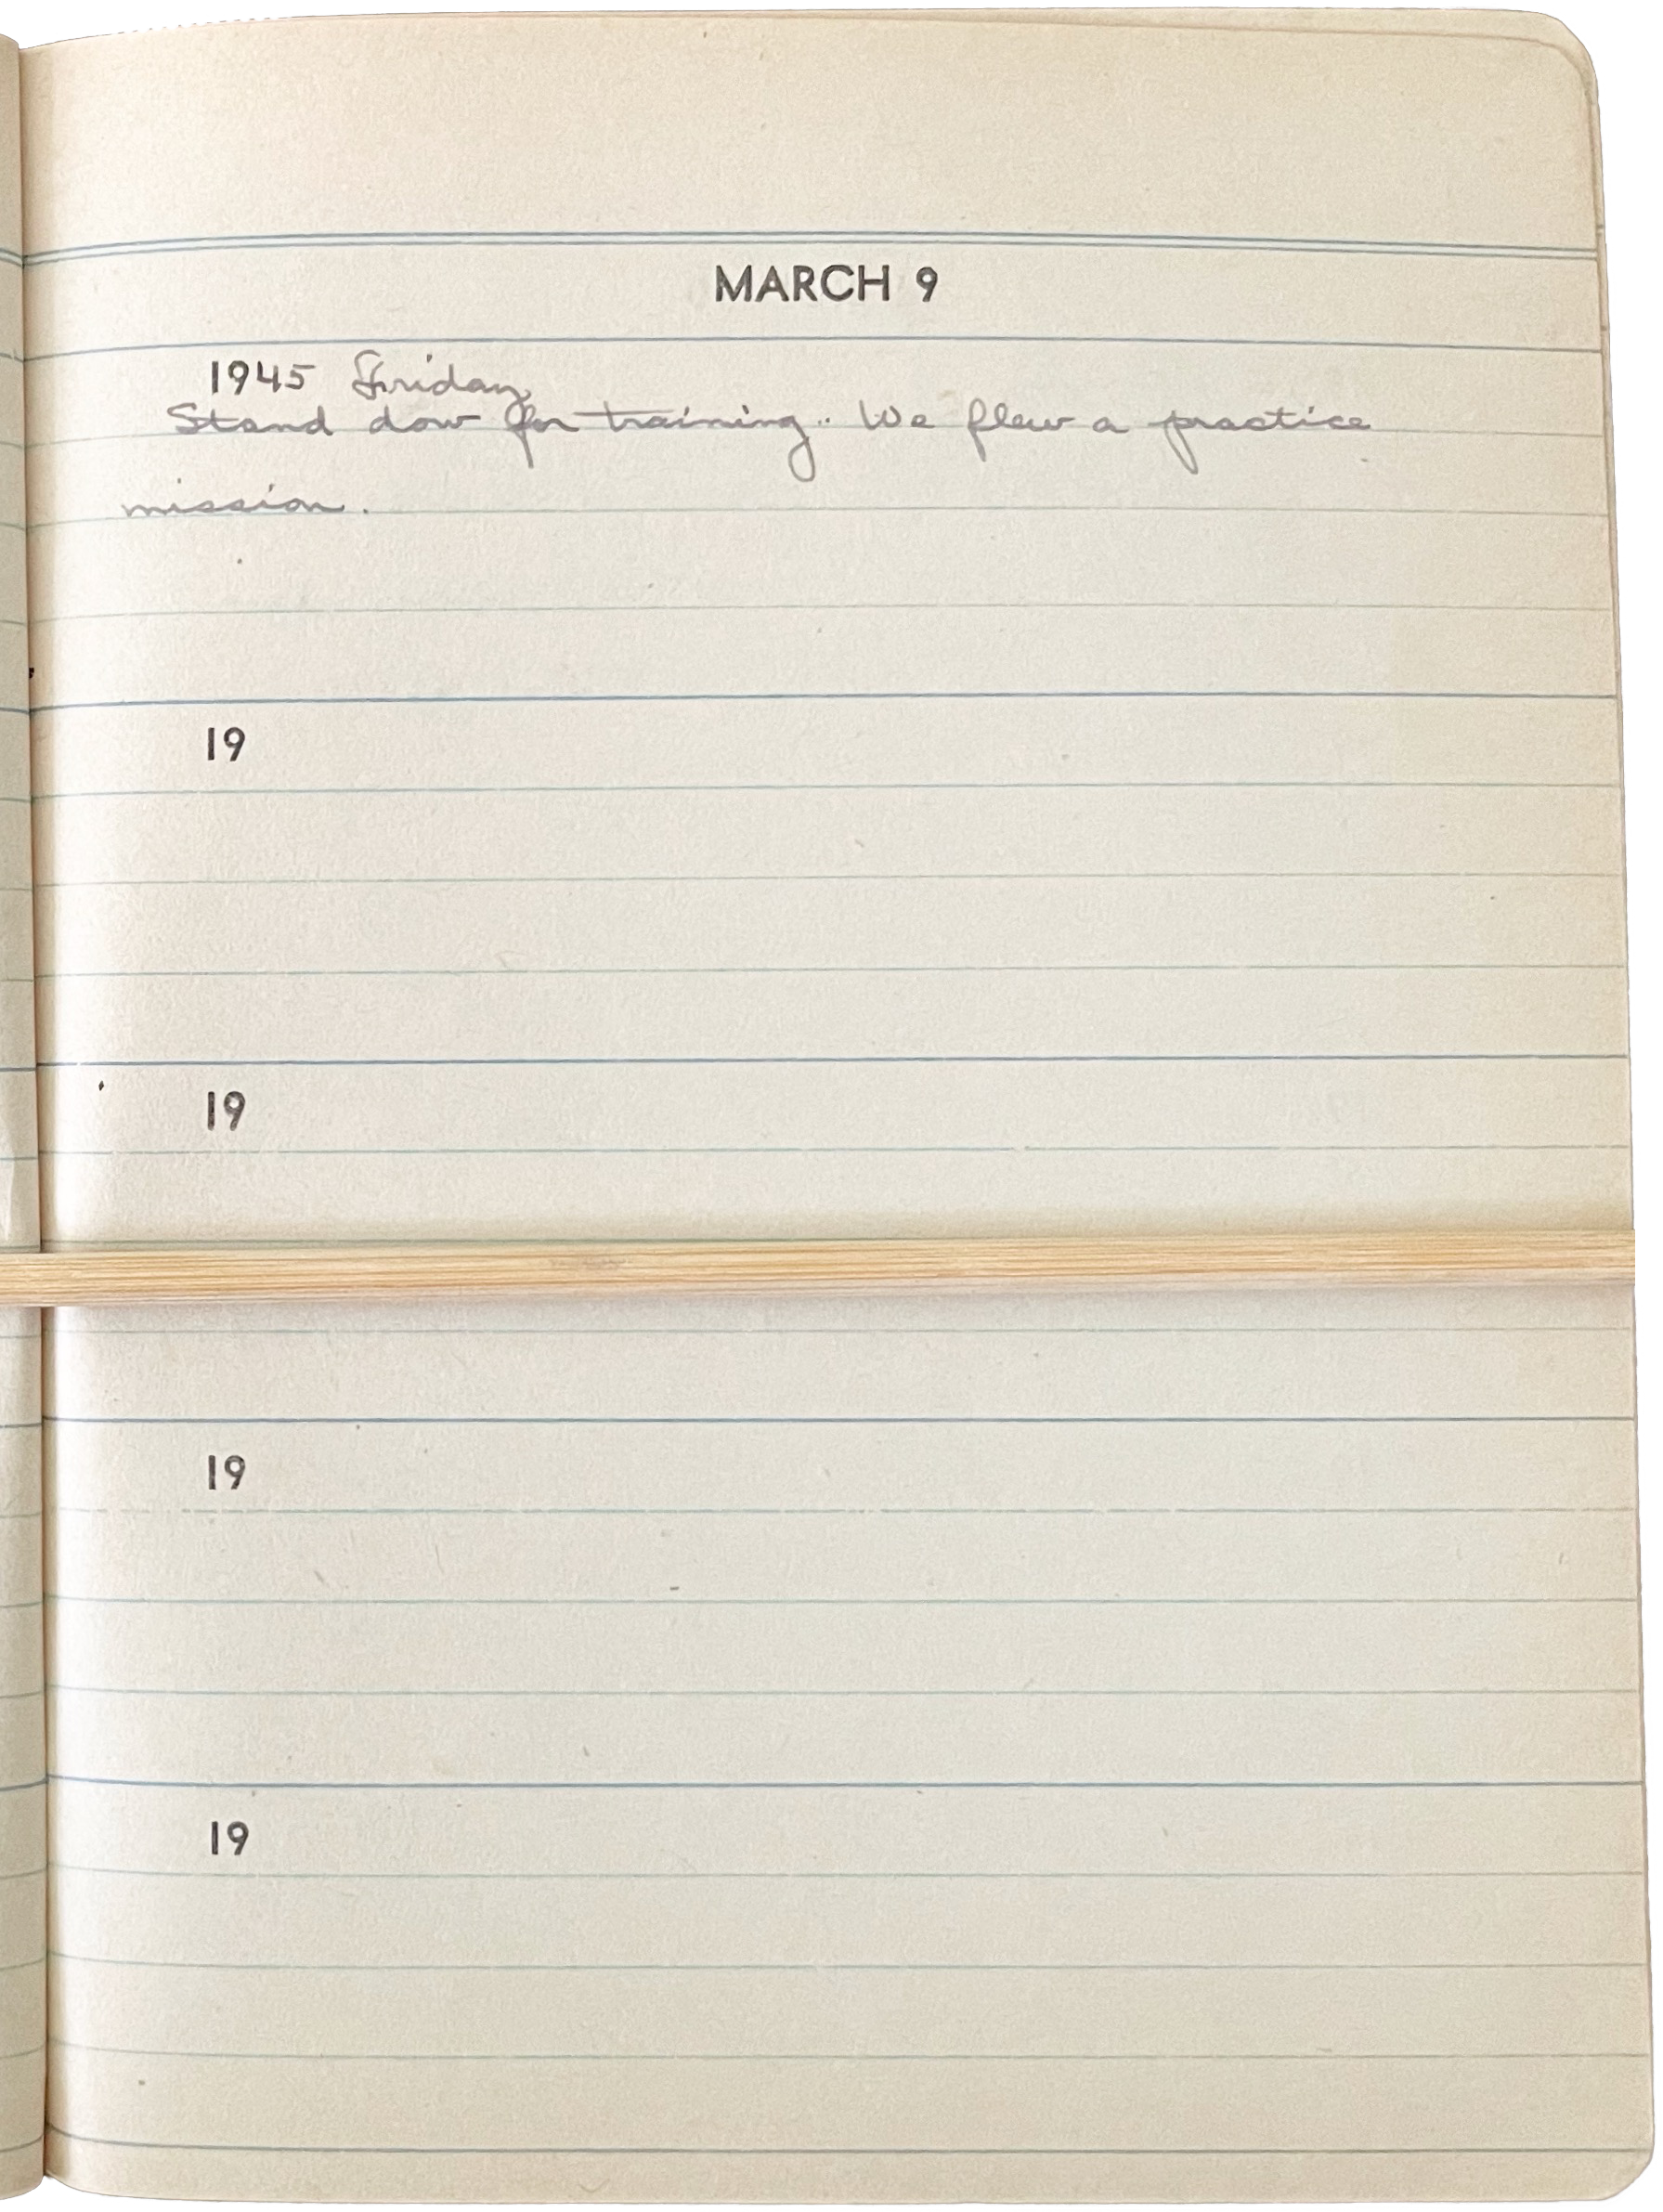 MARCH 9
1945 Friday
Stand dow for training.. We flew a practice
mission.
19
19
19
19